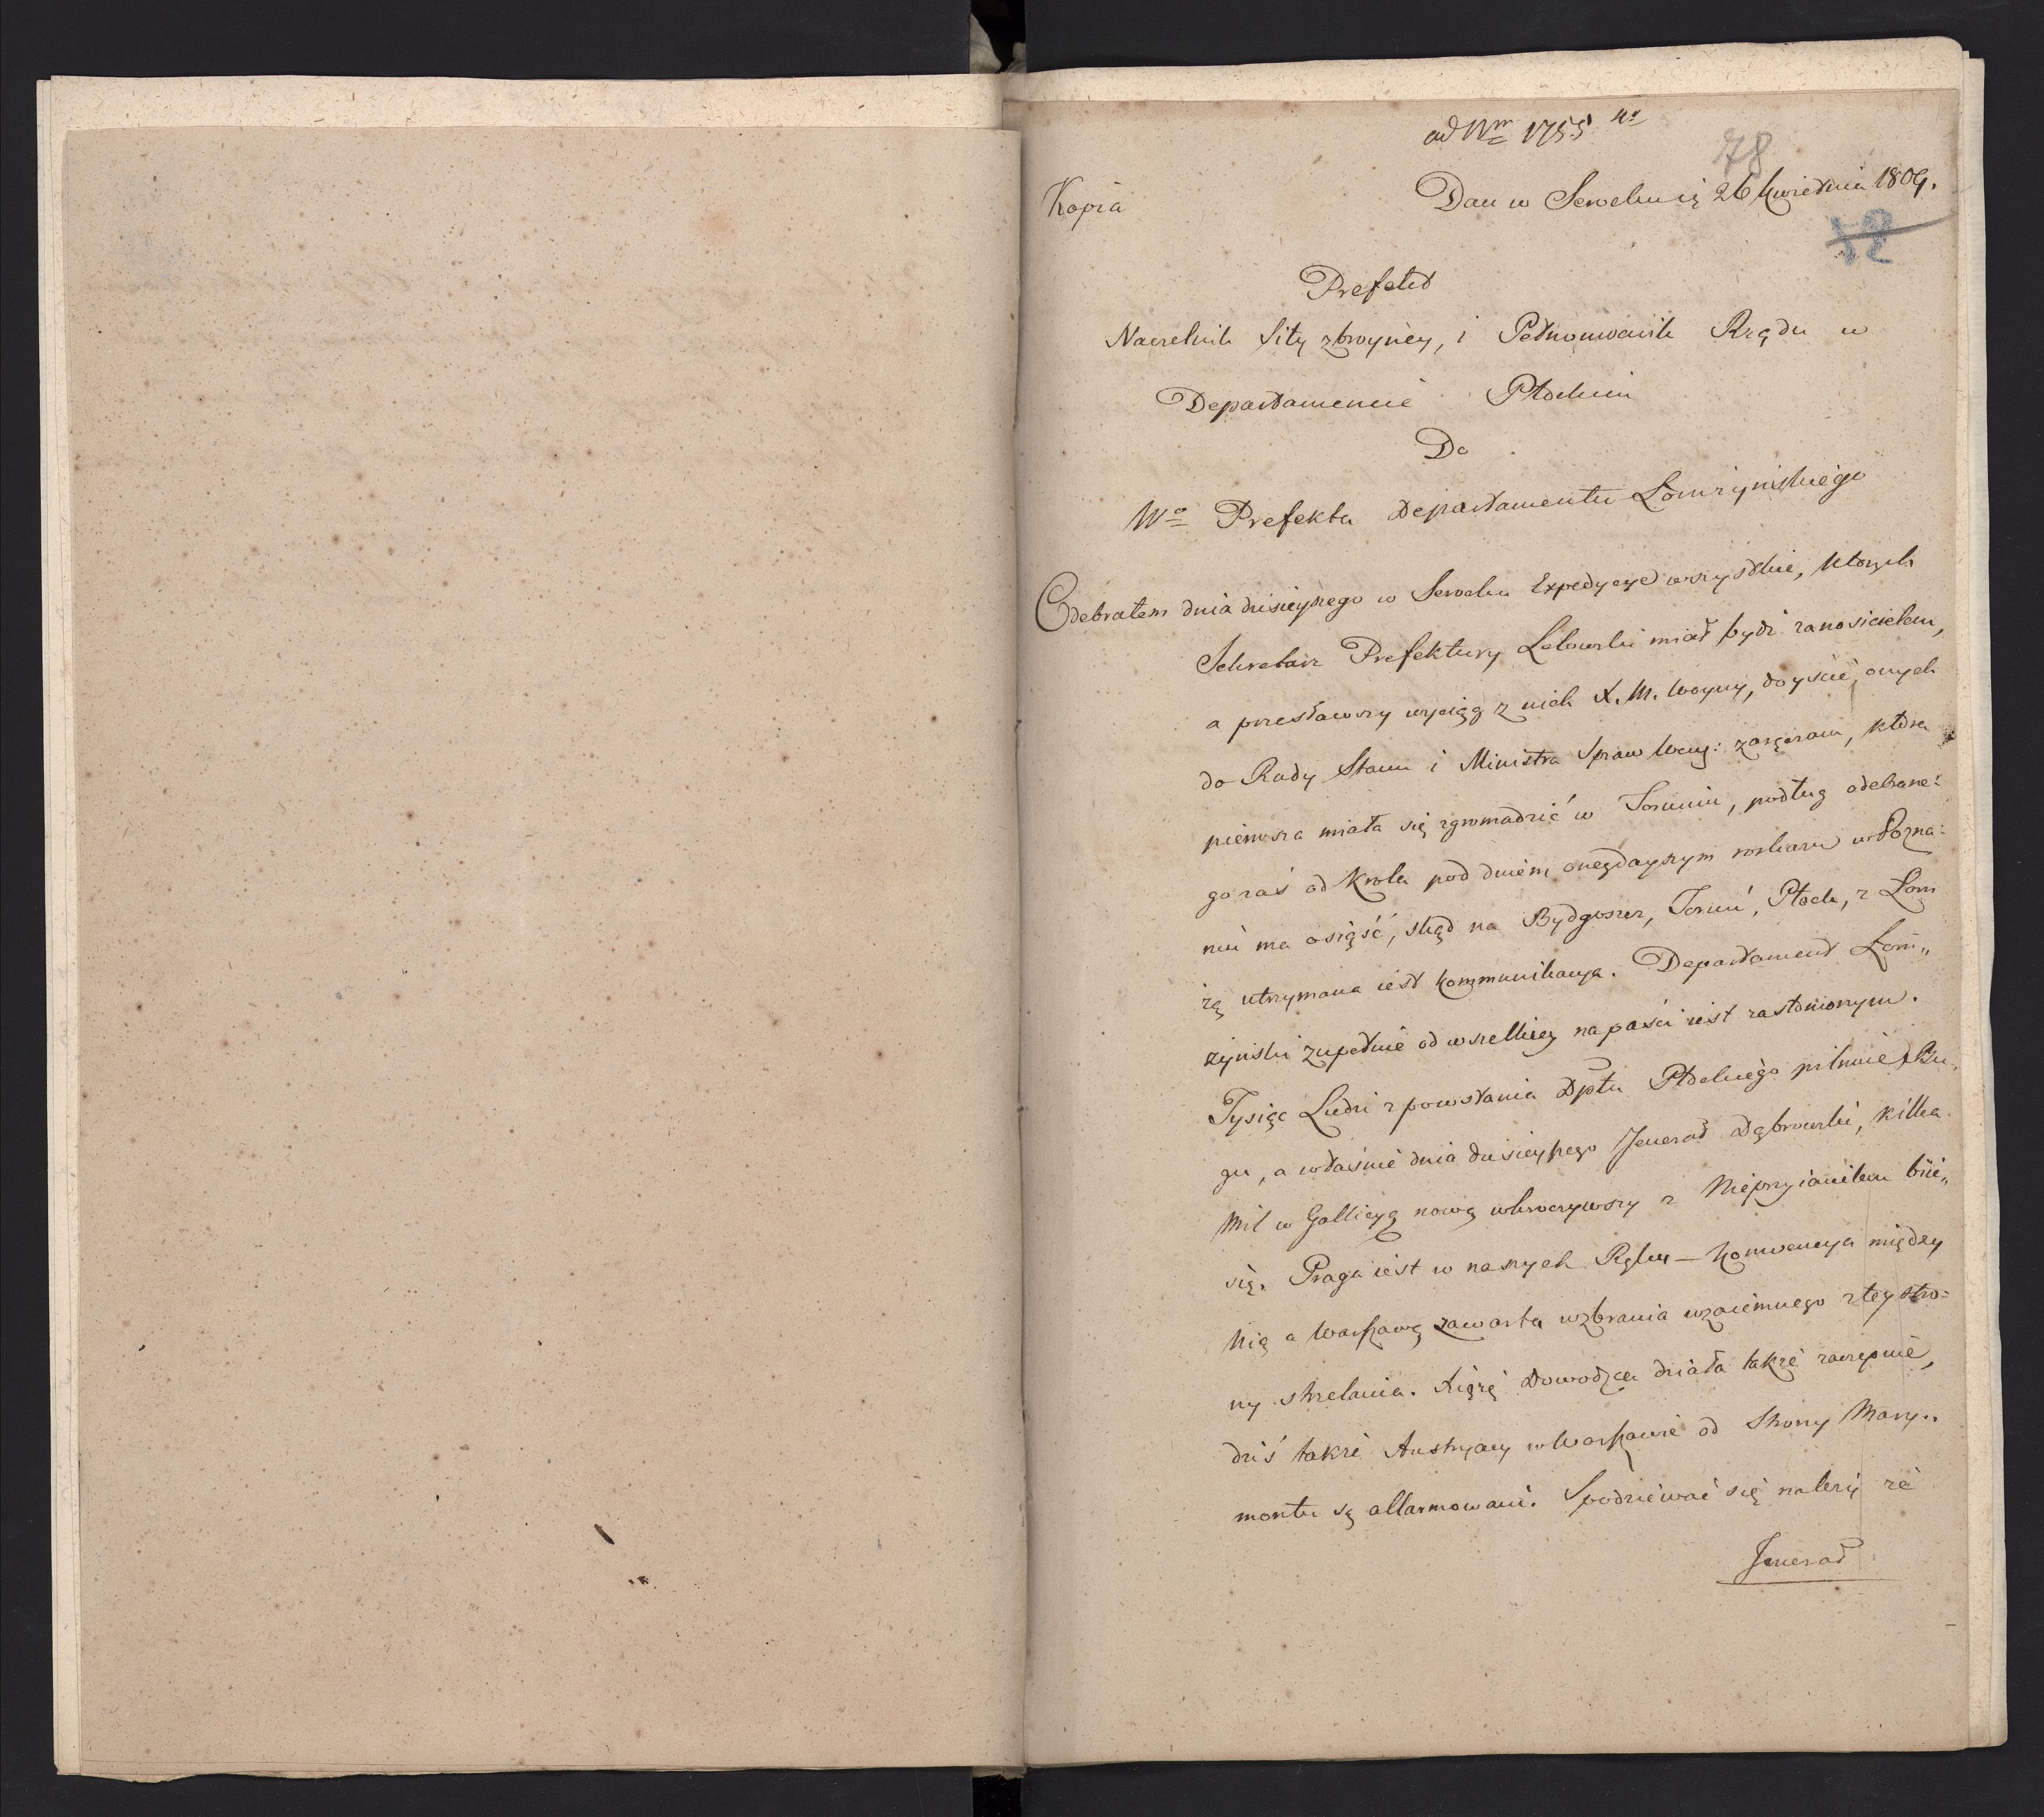 ad Nrm 1755
78
Kopia
Dan w Serocku 26 Kwietnia 1809.
52
Prefekt
Naczelnik siły zbroyney, i Pełnomocnik Rządu w
Departamencie Płockim
Do
Wo Prefekta Departamentu Łomżyńskiego
Odebrałem dnia dzisieyszego w Serocku Expedycye wszystkie, których
Sekretarz Prefektury Lelowski miał bydź zanosicielem,
a przesławszy wyciąg z nich X. M. Woyny, doyście onych
do Rady Stanu i Ministra Spraw Wewn: zaręczam, która
pierwsza miała się zgromadzić w Toruniu, podług odebrane:
go zaś od Krola pod dniem onegdayszym rozkazu w Pozna:
niu ma osiąść, stąd na Bydgoszcz, Toruń, Płock, z Łom
żą utrzymana iest kommunikacya. Departament Łom„
żyński zupełnie od wszelkiey napaści iest zasłonionym.
Tysiąc Ludzi z powstania Dptu Płockiego pilnuie Bu„
gu, a właśnie dnia dzisieyszego Jenerał Dąbrowski, kilka
mil w Gallicyą nową wkroczywszy z Nieprzyiacielem biie„
się. Praga iest w naszych Ręku — Konwencya między
Nią a Warszawą zawarta wzbrania wzaiemnego z tey stro=
ny strzelania. Xiążę Dowodzca działa także zaczepnie,
dziś także Austryacy w Warszawie od Strony Mary„
montu są allarmowani. Spodziewać się należy że
Jenerał